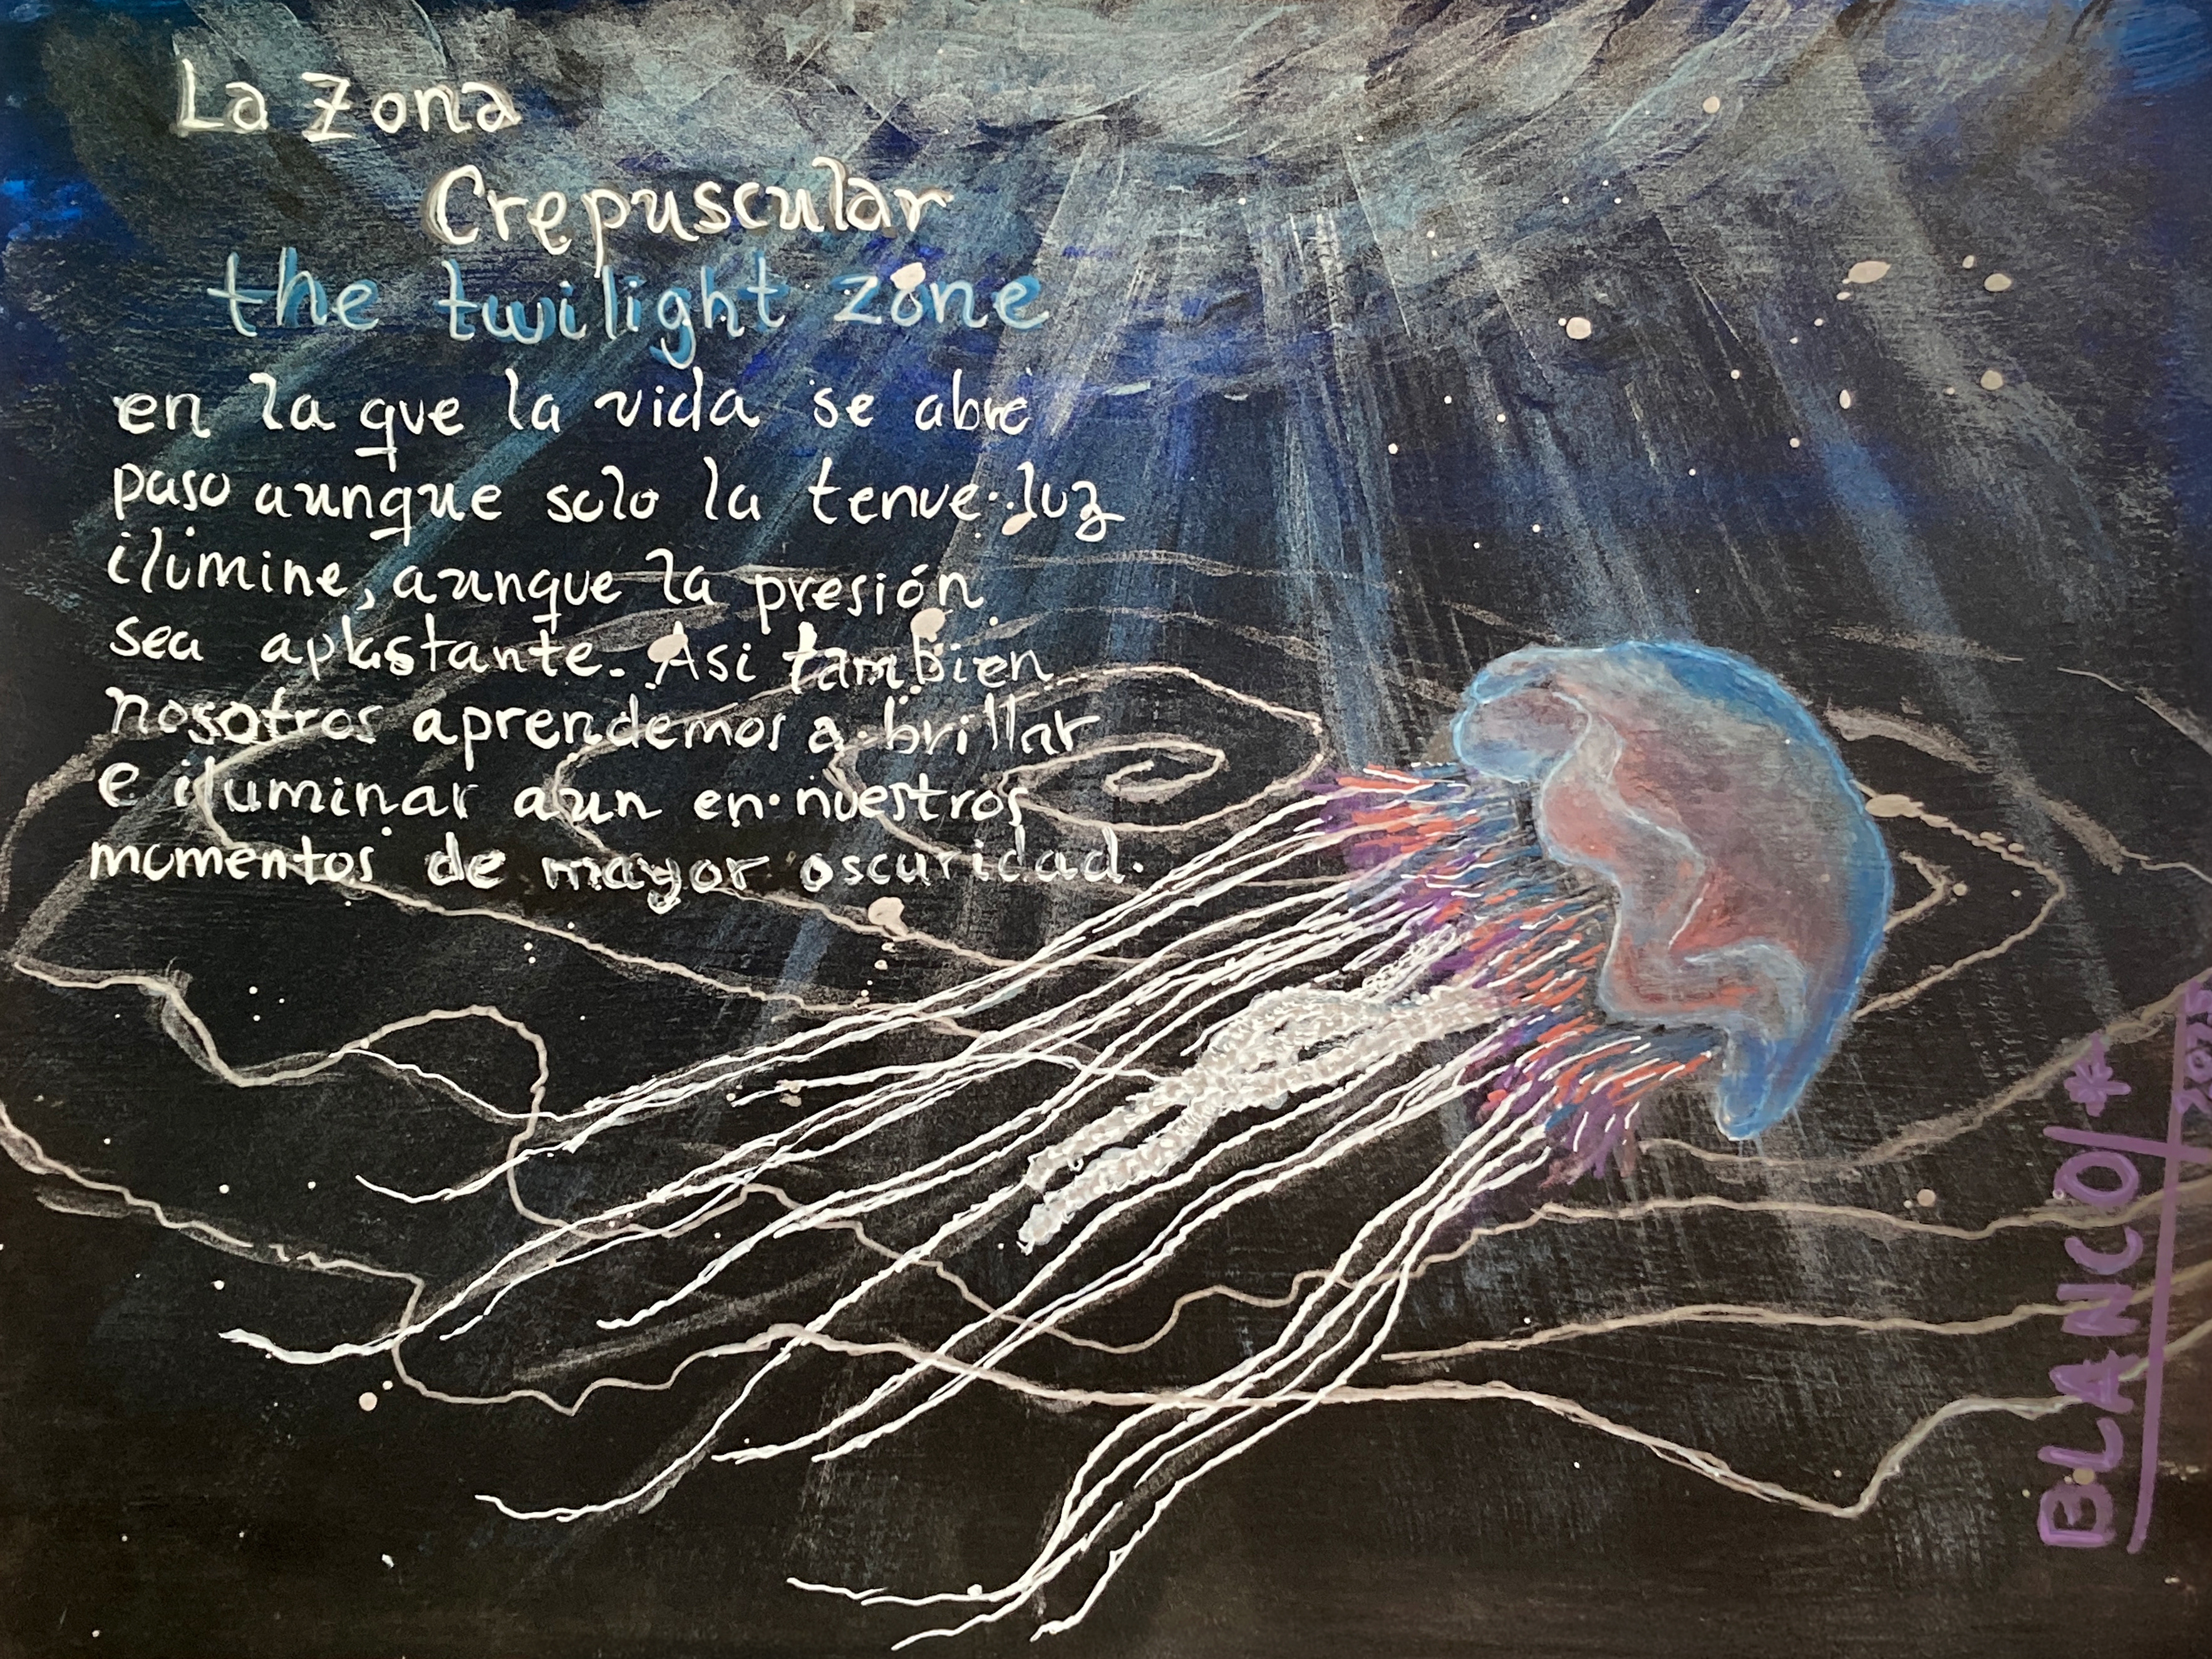 La Zona
Crepuscular
the twilight zone
en la que la vida se abre
paso aunque solo la tenue luz
ilumine, aunque la presión
sea aplastante. Asi tambien
nosotros aprendemos a brillar
e iluminar aun en nuestros
momentos de mayor oscuridad.
BLANCO